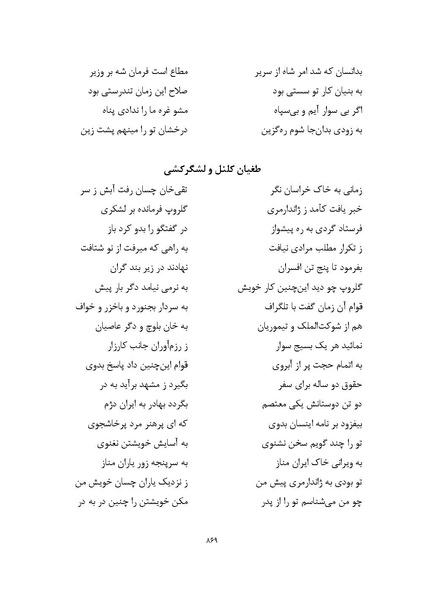 بدانسان که شد امر شاه از سریر مطاع است فرمان شه بر وزیر
به بنیان کار تو سستی بود صلاح این زمان تندرستی بود
اگر بی سوار آیم و بی‌سپاه مشو غره ما را ندادی پناه
به زودی بدان‌جا شوم ره‌گزین درخشان تو را مینهم پشت زین
طغیان کلنل و لشگرکشی
زمانی به خاک خراسان نگر تقی‌خان چسان رفت آبش ز سر
خبر یافت کآمد ز ژاندارمری گلروپ فرمانده بر لشکری
فرستاد گردی به ره پیشواز در گفتگو را بدو کرد باز
ز تکرار مطلب مرادی نیافت به راهی که میرفت از نو شتافت
بفرمود تا پنج تن افسران نهادند در زیر بند گران
گلروپ چو دید این‌چنین کار خویش به نرمی نیامد دگر بار پیش
قوام آن زمان گفت با تلگراف به سردار بجنورد و باخزر و خواف
هم از شوکت‌الملک و تیموریان به خان بلوچ و دگر عاصیان
نمائید هر یک بسیج سوار ز رزم‌آوران جانب کارزار
به اتمام حجت پر از آبروی قوام این‌چنین داد پاسخ بدوی
حقوق دو ساله برای سفر بگیرد ز مشهد برآید به در
دو تن دوستانش یکی معتصم بگردد بهادر به ایران دژم
بیفزود بر نامه اینسان بدوی که ای پرهنر مرد پرخاشجوی
تو را چند گویم سخن نشنوی به آسایش خویشتن نغنوی
به ویرانی خاک ایران مناز به سرپنجه زور یاران مناز
تو بودی به ژاندارمری پیش من ز نزدیک یاران چسان خویش من
چو من می‌شناسم تو را از پدر مکن خویشتن را چنین در به در
۸۶۹